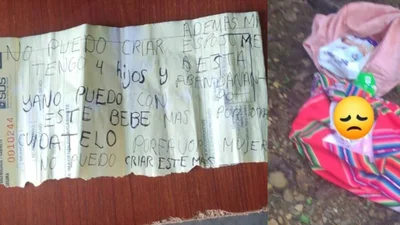 NO PUEDO CRIAR ADEMAS MI
TENGO 4 hIJOS Y ESPOS ME
AESTA
ABANDANANT
YANO PUEDO CON DO
ESTE BEBE MAS PORFAVOR
CUIDATELO PORFAVOR MUJER
NO PUEDO CRIAR ESTE MAS
SUS
0010244